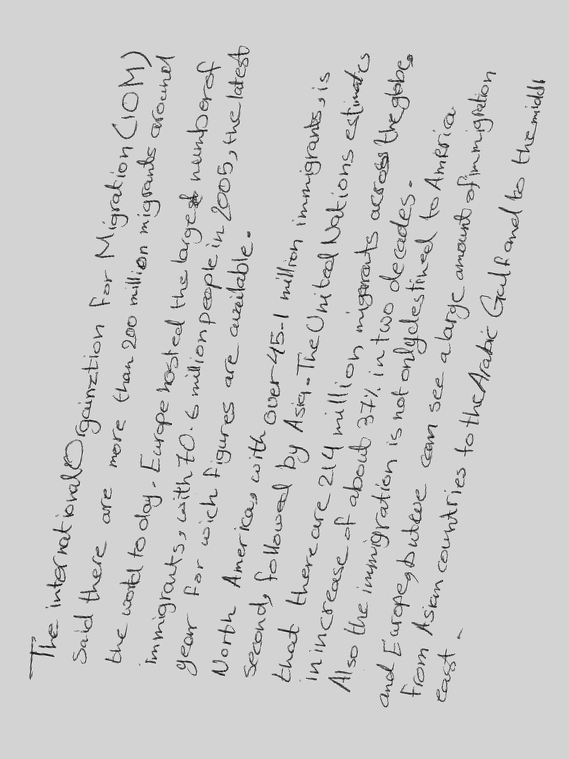 The international Orgainztion for Migration (IOM)
said there are more than 200 million migrants around
the world today. Europe hosted the largest number of
immigrants, with 70.6 million people in 2005, the latest
year for wich figures are available.
North America, with over 45-1 million immigrants, is
second, followed by Asia. The United Nations estimates
that there are 214 million migrants across the globe,
in increase of about 37% in two decades.
Also the immigration is not only destined to America
and Europe, but we can see a large amount of immigration
from Asian countries to the Arabic Gulf and to the middle
east.